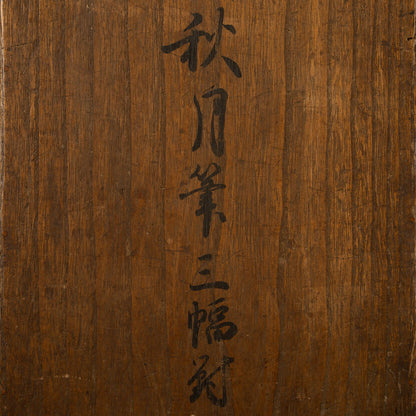 秋月筆三幅対